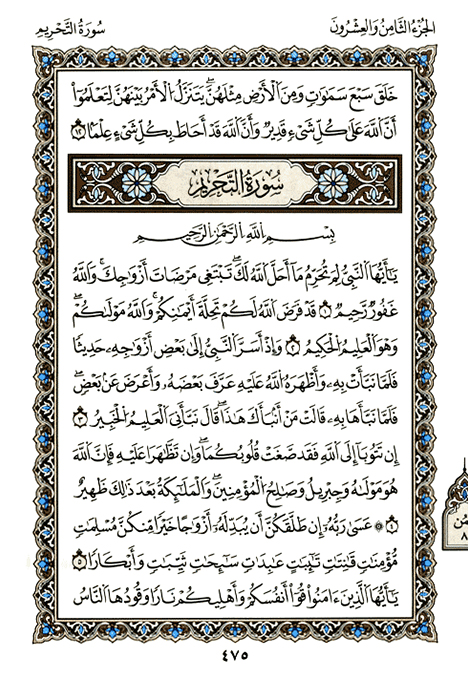 الجُزْءُ الثَّامِنُ وَالعِشْرُونَ
سُورَةُ التَّحْرِيم
خَلَقَ سَبْعَ سَمَٰوَٰتٍ وَمِنَ ٱلْأَرْضِ مِثْلَهُنَّۖ يَتَنَزَّلُ ٱلْأَمْرُ بَيْنَهُنَّ لِتَعْلَمُوٓا۟
أَنَّ ٱللَّهَ عَلَىٰ كُلِّ شَىْءٍ قَدِيرٌ وَأَنَّ ٱللَّهَ قَدْ أَحَاطَ بِكُلِّ شَىْءٍ عِلْمًۢا ١٢
سُورَةُ التَّحْرِيمِ
بِسْمِ ٱللَّهِ ٱلرَّحْمَٰنِ ٱلرَّحِيمِ
يَٰٓأَيُّهَا ٱلنَّبِىُّ لِمَ تُحَرِّمُ مَآ أَحَلَّ ٱللَّهُ لَكَۖ تَبْتَغِى مَرْضَاتَ أَزْوَٰجِكَۚ وَٱللَّهُ
غَفُورٌ رَّحِيمٌ ١ قَدْ فَرَضَ ٱللَّهُ لَكُمْ تَحِلَّةَ أَيْمَٰنِكُمْۚ وَٱللَّهُ مَوْلَىٰكُمْۖ
وَهُوَ ٱلْعَلِيمُ ٱلْحَكِيمُ ٢ وَإِذْ أَسَرَّ ٱلنَّبِىُّ إِلَىٰ بَعْضِ أَزْوَٰجِهِۦ حَدِيثًا
فَلَمَّا نَبَّأَتْ بِهِۦ وَأَظْهَرَهُ ٱللَّهُ عَلَيْهِ عَرَّفَ بَعْضَهُۥ وَأَعْرَضَ عَنۢ بَعْضٍۖ
فَلَمَّا نَبَّأَهَا بِهِۦ قَالَتْ مَنْ أَنۢبَأَكَ هَٰذَاۖ قَالَ نَبَّأَنِىَ ٱلْعَلِيمُ ٱلْخَبِيرُ ٣
إِن تَتُوبَآ إِلَى ٱللَّهِ فَقَدْ صَغَتْ قُلُوبُكُمَاۖ وَإِن تَظَٰهَرَا عَلَيْهِ فَإِنَّ ٱللَّهَ
هُوَ مَوْلَىٰهُ وَجِبْرِيلُ وَصَٰلِحُ ٱلْمُؤْمِنِينَۖ وَٱلْمَلَٰٓئِكَةُ بَعْدَ ذَٰلِكَ ظَهِيرٌ
٤ عَسَىٰ رَبُّهُۥٓ إِن طَلَّقَكُنَّ أَن يُبْدِلَهُۥٓ أَزْوَٰجًا خَيْرًا مِّنكُنَّ مُسْلِمَٰتٍ
مُّؤْمِنَٰتٍ قَٰنِتَٰتٍ تَٰٓئِبَٰتٍ عَٰبِدَٰتٍ سَٰٓئِحَٰتٍ ثَيِّبَٰتٍ وَأَبْكَارًا ٥
يَٰٓأَيُّهَا ٱلَّذِينَ ءَامَنُوا۟ قُوٓا۟ أَنفُسَكُمْ وَأَهْلِيكُمْ نَارًا وَقُودُهَا ٱلنَّاسُ
٤٧٥